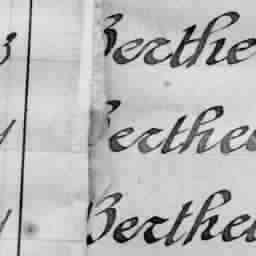 3 Berthe
y Berthe
y Berthe